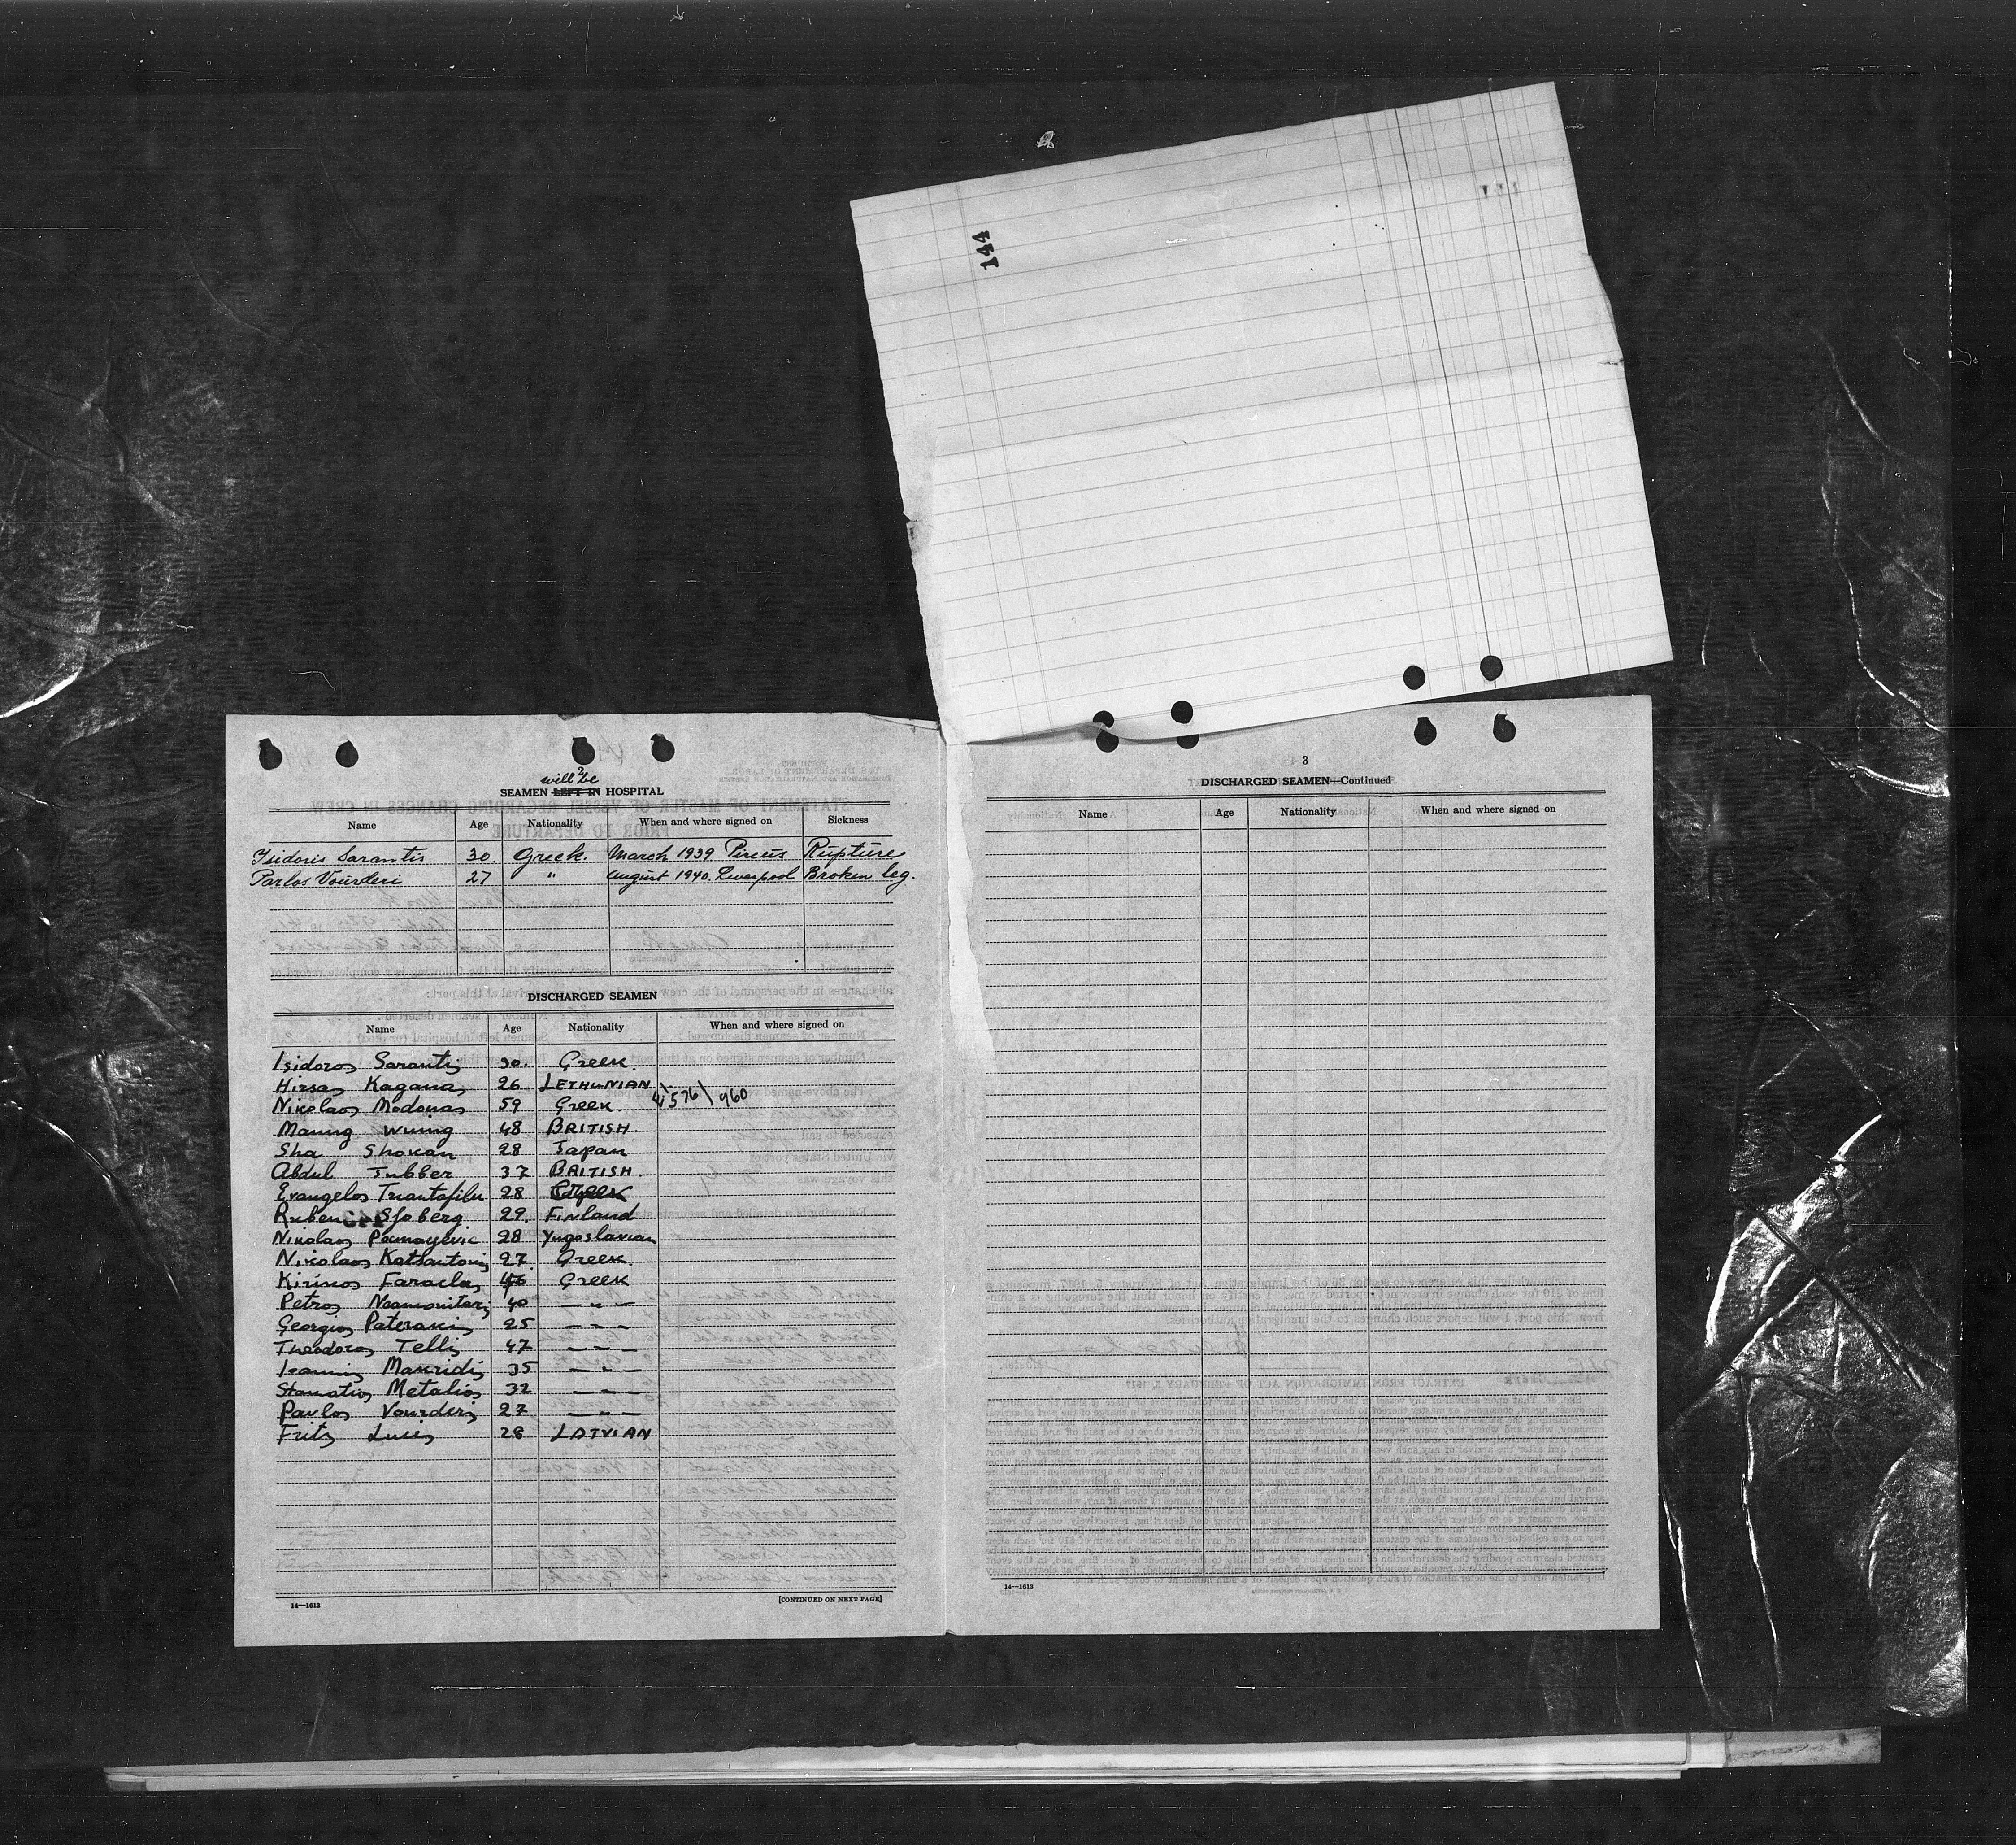 144
will be
2
SEAMEN LEFT IN HOSPITAL
Name Age Nationality When and where signed on Sickness
Isidoris Sarantis 30. Greek. March 1939 Pireus Rupture
Parlos Vourderi 27 " August 1940. Liverpool Broken leg.
DISCHARGED SEAMEN
Name Age Nationality When and where signed on
Isidoros Sarantis 30. Greek.
Hirsas Kaganas 26 LETHUNIAN
Nikolaos Modonas 59 Greek 576/960
Maung Wuing 48 BRITISH
Sha Shokan 28 Japan
Abdul Jubber 37 BRITISH.
Evangelos Triantafilu 28 Greek
Ruben Sjoberg 29. Finland
Nikolaos 28 Yugoslavian
Nikolaos Katsantonis 27. Greek.
Kirikos Faraclas 46 Greek
Petros Neamonitaris 40 — " —
Georgios Paterakis 25 — " —
Theodoros Tellis 47 — " —
Ioannis Mavridis 35 — " —
Stamatios Metalios 32 — " —
Pavlos Vourderis 27 — " —
Frits Lucis 28 LATVIAN
14—1613 [CONTINUED ON NEXT PAGE]
3
DISCHARGED SEAMEN—Continued
Name Age Nationality When and where signed on
14—1613